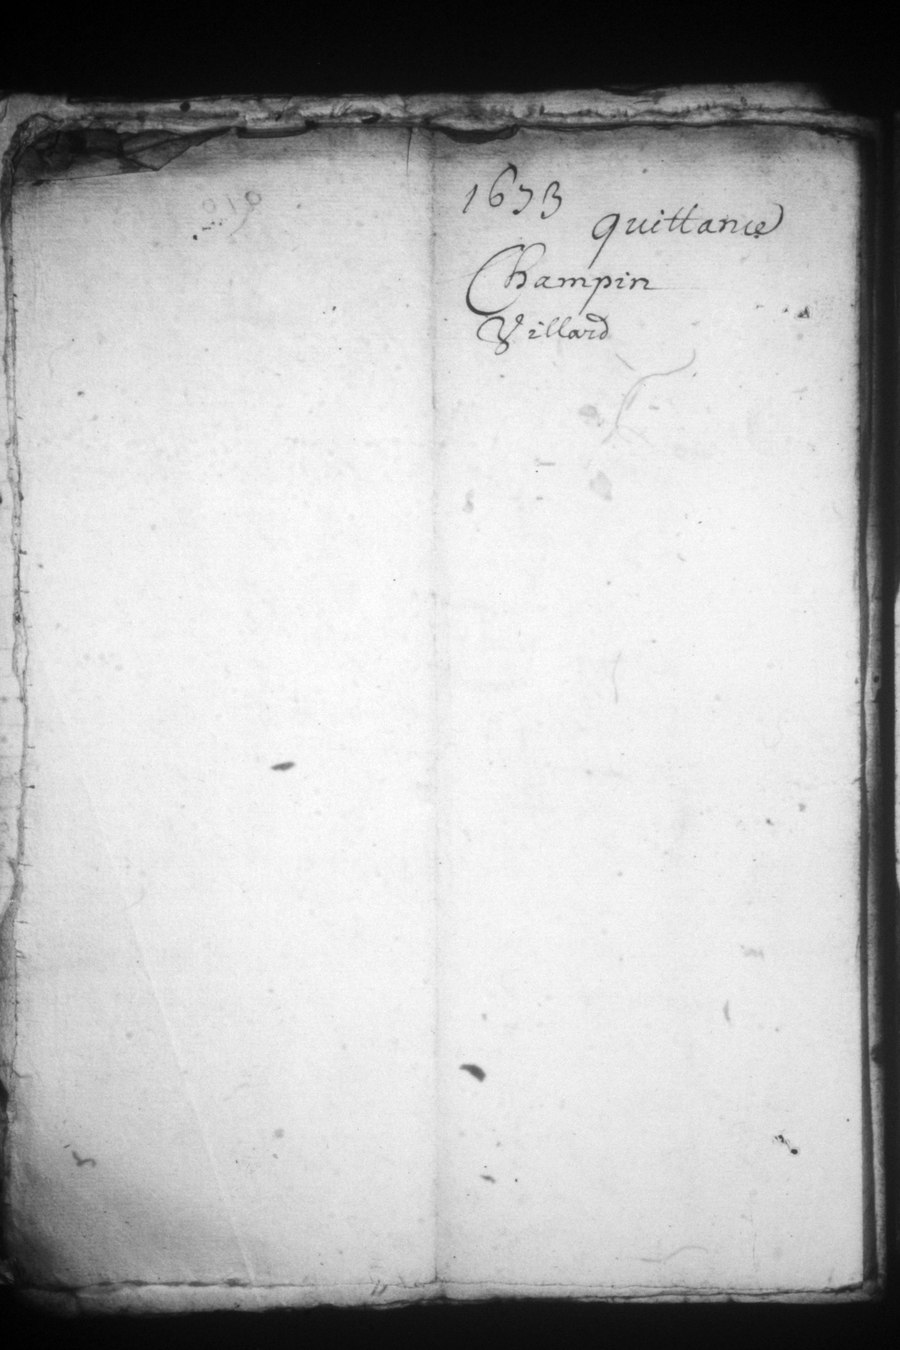 1673
quittance
Champin
Villard